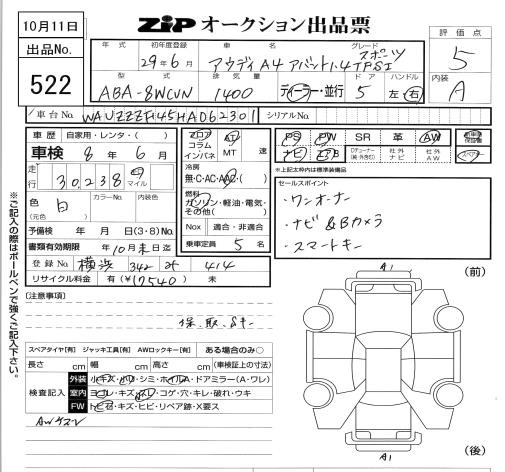 10月11日
ZIP オークション出品票
評価点
5
内装
A
出品No.
522
年式 初年度登録 車名 グレード
29年6月 アウディA4アバント1.4TFSI スポーツ
型式 排気量 ドア ハンドル
ABA-8WCVN 1400 ディーラー・並行 5 左 右
車台No. WAUZZZF45HA062301 シリアルNo.
車歴 自家用・レンタ・( )
車検 8年 6月
走行 30,238 キロ マイル
色 白 (元色) カラーNo. 内装色
予備検 年 月 日(3・8)No.
書類有効期限 10月末日迄
登録No. 横浜 342 414
リサイクル料金 有(¥17540) 未
フロア コラム インパネ AT MT 速
冷房 無・C・AC・AAC・( )
燃料 ガソリン・軽油・電気・その他( )
Nox 適合・非適合
乗車定員 5名
PS PW SR 革 AW
ナビ エアB Dチューナー(純・外含む) 社外ナビ 社外AW
新車時保証書
スペアキー
※上記太枠内は標準装備品
セールスポイント
・ワンオーナー
・ナビ&Bカメラ
・スマートキー
[注意事項]
保、取、Sキー
スペアタイヤ[有] ジャッキ工具[有] AWロックキー[有] ある場合のみ○
長さ cm 幅 cm 高さ cm (車検証上の寸法)
検査記入
外装 小キズ・小凹・シミ・ホイルA・ドアミラー(A・ワレ)
室内 ヨゴレ・キズ・スレ・コゲ・穴・キレ・破れ・ウキ
FW トビ石・キズ・ヒビ・リペア跡・X要ス
AWキズ
A1
(前)
A1
(後)
※ご記入の際はボールペンで強くご記入下さい。